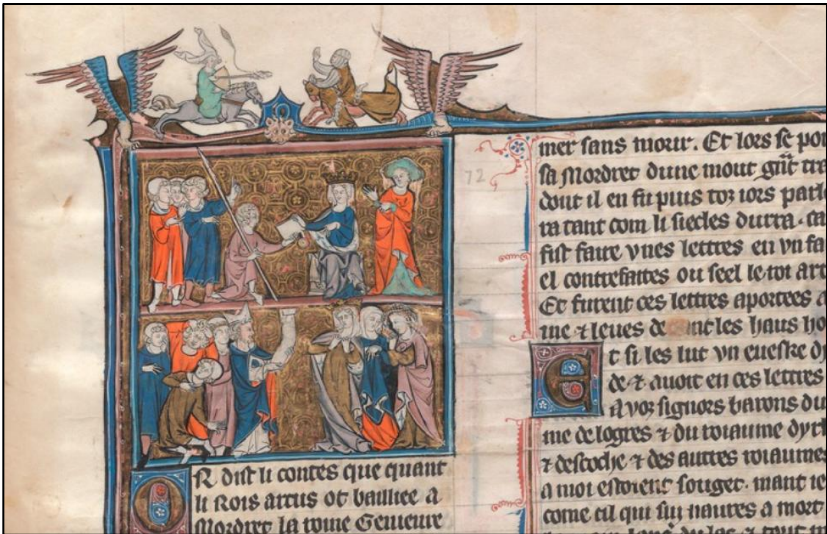 OR dist li contes que quant
li Rois artus ot bailliee a
Mordret la roine Genieure
72
mer sans mour. Et lors se por
sa Mordret dune mout tra
dont il en fu puis toz iors parle
ra tant com li siecles durra. ca
fist faire vnes lettres en vn fa
el contrefaites ou seel le roi art
Et furent ces lettres aportees a
ine ⁊ leues de les haus ho
Et si les lut vn euesre
de ⁊ auoit en ces lettres
A voz signors barons du
me de logres ⁊ du roiaume dyrl
⁊ descoche ⁊ des autres roiaumes
a moi estoient souget. mant ie
come cil qui sui naures a mort
du lac ⁊ tout